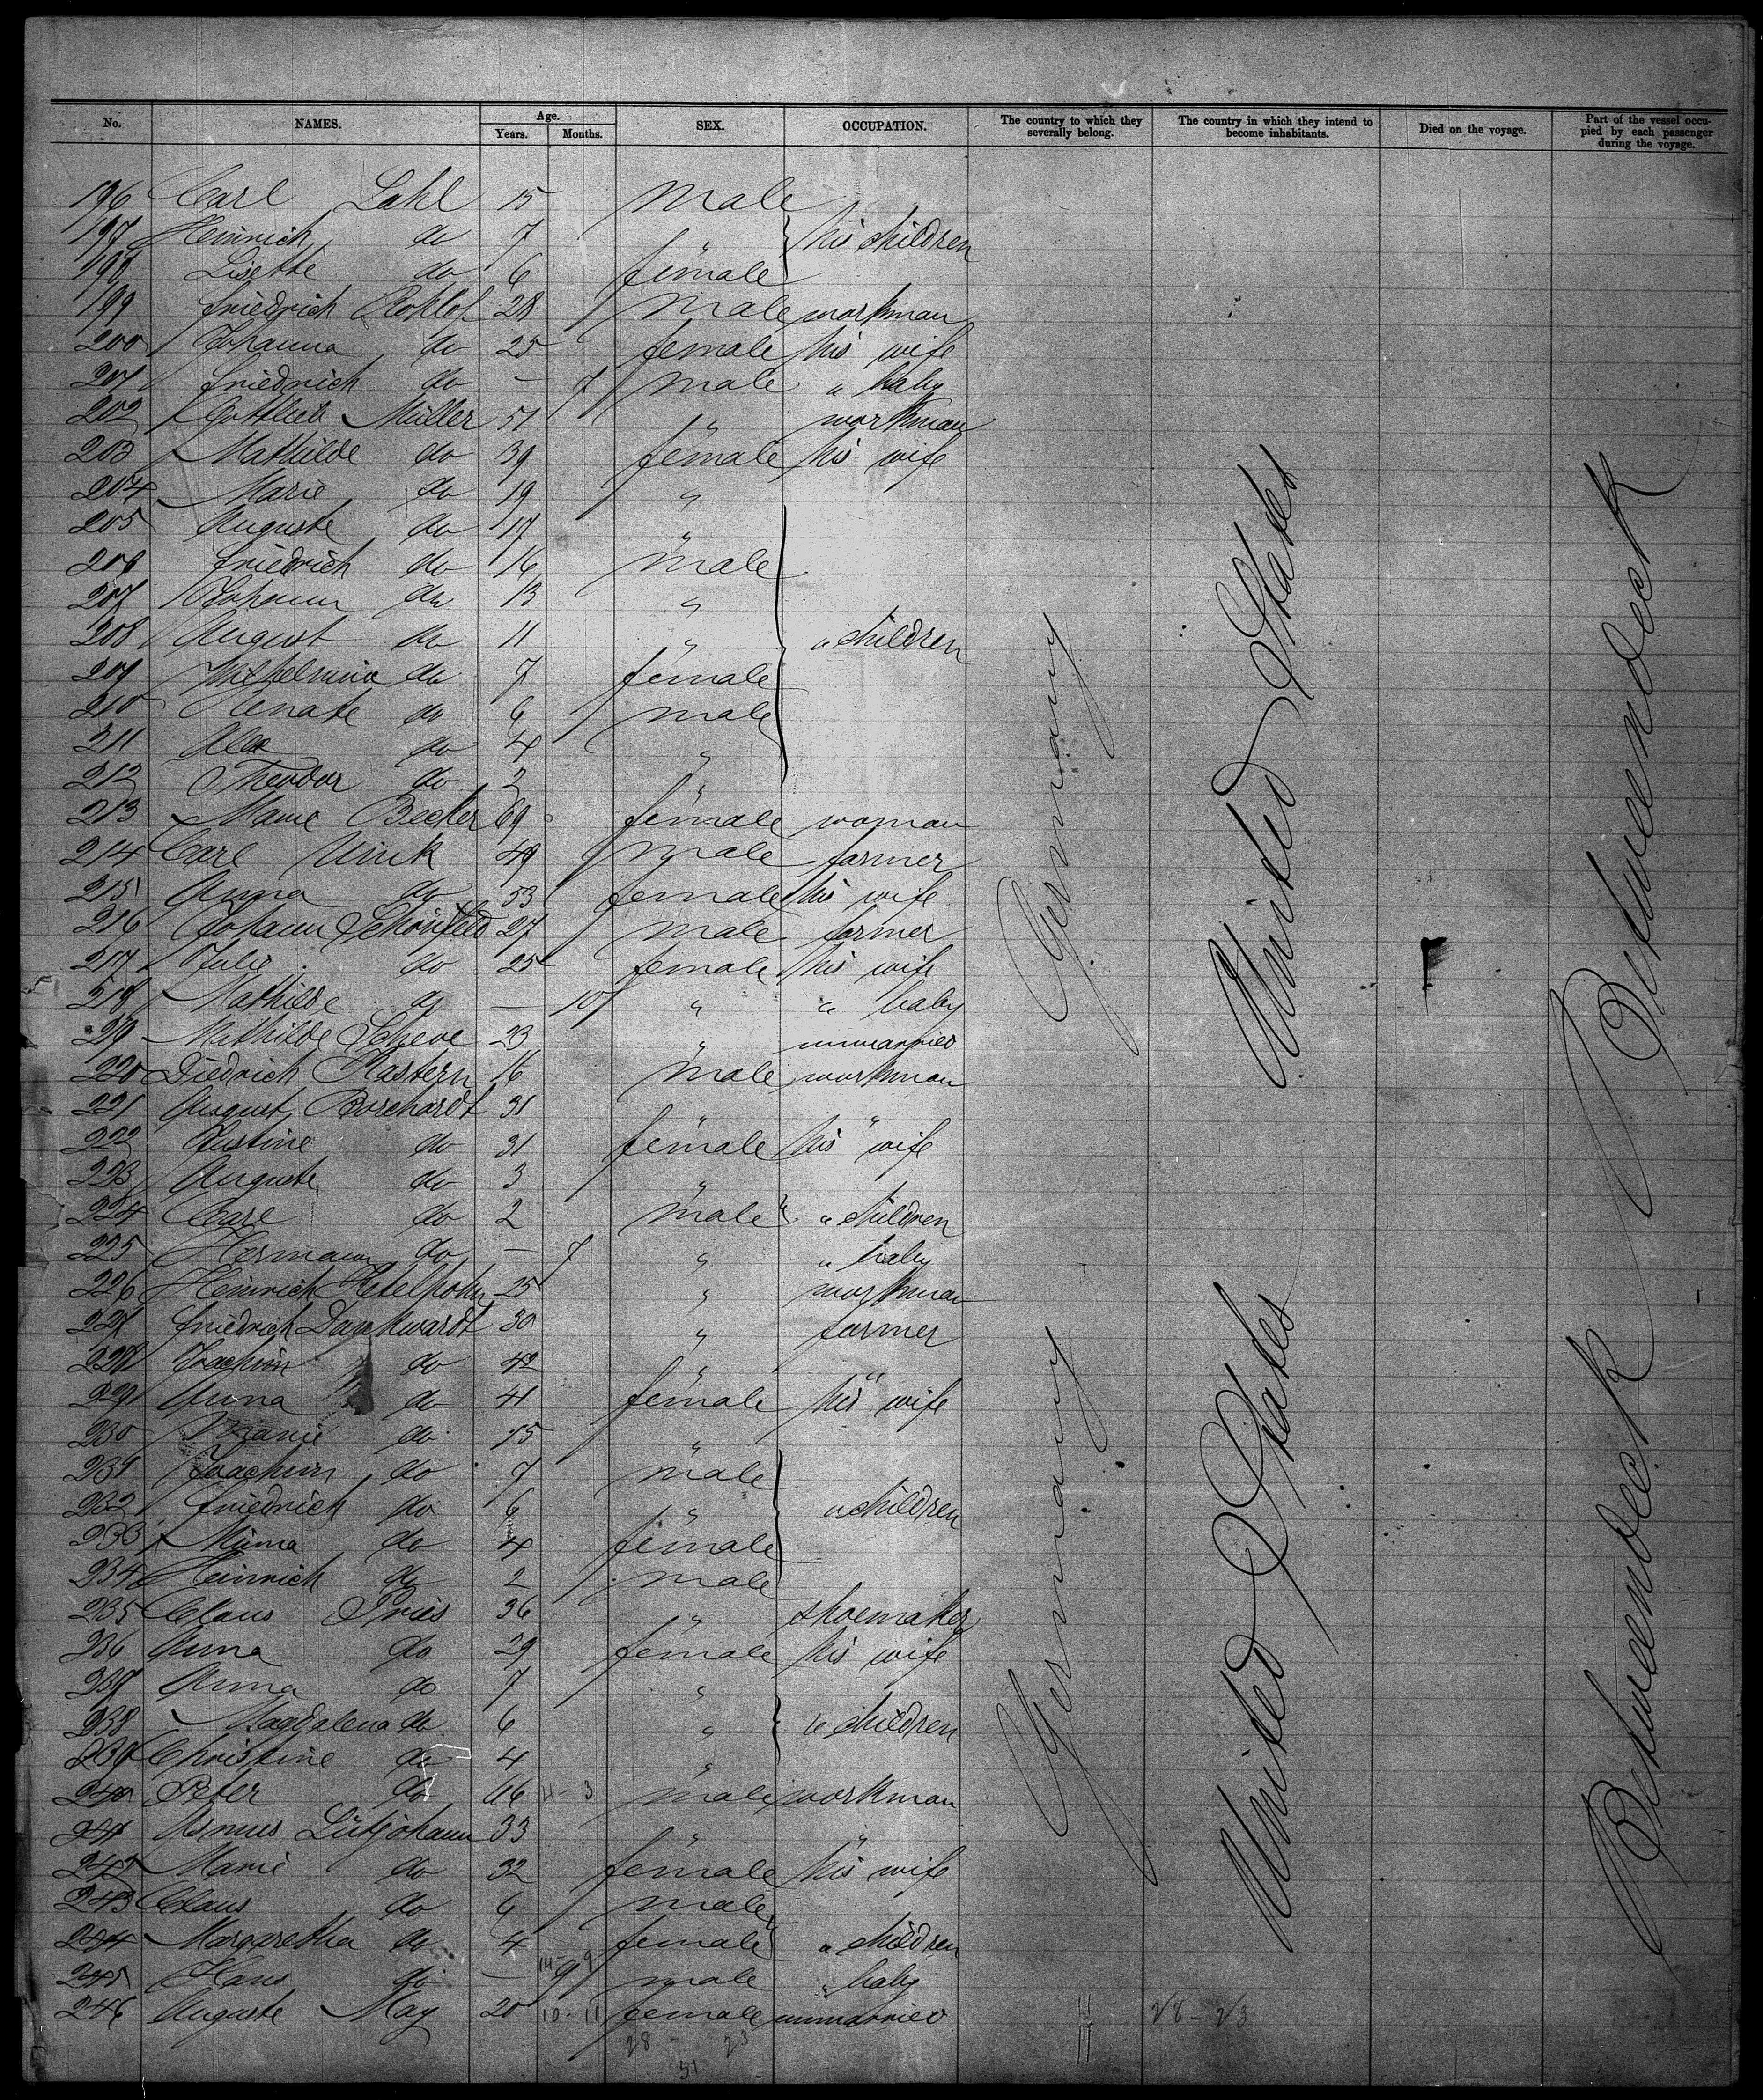 No. NAMES. Age. Years. Months. SEX. OCCUPATION. The country to which they severally belong. The country in which they intend to become inhabitants. Died on the voyage. Part of the vessel occupied by each passenger during the voyage.
196 Carl Lahl 15 male
197 Heinrich do 7 " his children
198 Lisette do 6 female
199 Friedrich Rohlof 28 male workman
200 Johanna do 25 female his wife
201 Friedrich do — 7 male " baby
202 Gottlieb Müller 51 " workman
203 Mathilde do 39 female his wife
204 Marie do 19 "
205 Auguste do 17 "
206 Friedrich do 16 male
207 Johann do 13 "
208 August do 11 " " children
209 Wilhelmine do 7 female
210 Renate do 6 male
211 Alex do 4 "
212 Theodor do 2 "
213 Marie Becker 69 female woman
214 Carl Unik 49 male farmer
215 Anna do 53 female his wife
216 Johann Schönfeld 27 male farmer
217 Julie do 25 female his wife
218 Mathilde do — 10 " " baby
219 Mathilde Scheve 23 " unmarried
220 Diedrich Kastern 16 male workman
221 August Borchardt 31 " "
222 Justine do 31 female his wife
223 Auguste do 3 "
224 Carl do 2 male " children
225 Hermann do — 7 " " baby
226 Heinrich Ketelhohn 25 " workman
227 Friedrich Dankwardt 30 " farmer
228 Joachim do 42 " "
229 Anna do 41 female his wife
230 Marie do 15 "
231 Joachim do 7 male
232 Friedrich do 6 " " children
233 Minna do 4 female
234 Heinrich do 2 male
235 Claus Pries 36 " shoemaker
236 Anna do 29 female his wife
237 Anna do 7 "
238 Magdalena do 6 " " children
239 Christine do 4 "
240 Peter do 66 11 - 3 male workman
241 Asmus Lütjohann 33 " "
242 Marie do 32 female his wife
243 Claus do 6 male
244 Margaretha do 4 female " children
245 Hans do — 9 male " baby
246 Auguste May 20 10 - 11 female unmarried
28 - 23
28 23
51
Germany
Germany
United States
United States
Betweendeck
Betweendeck